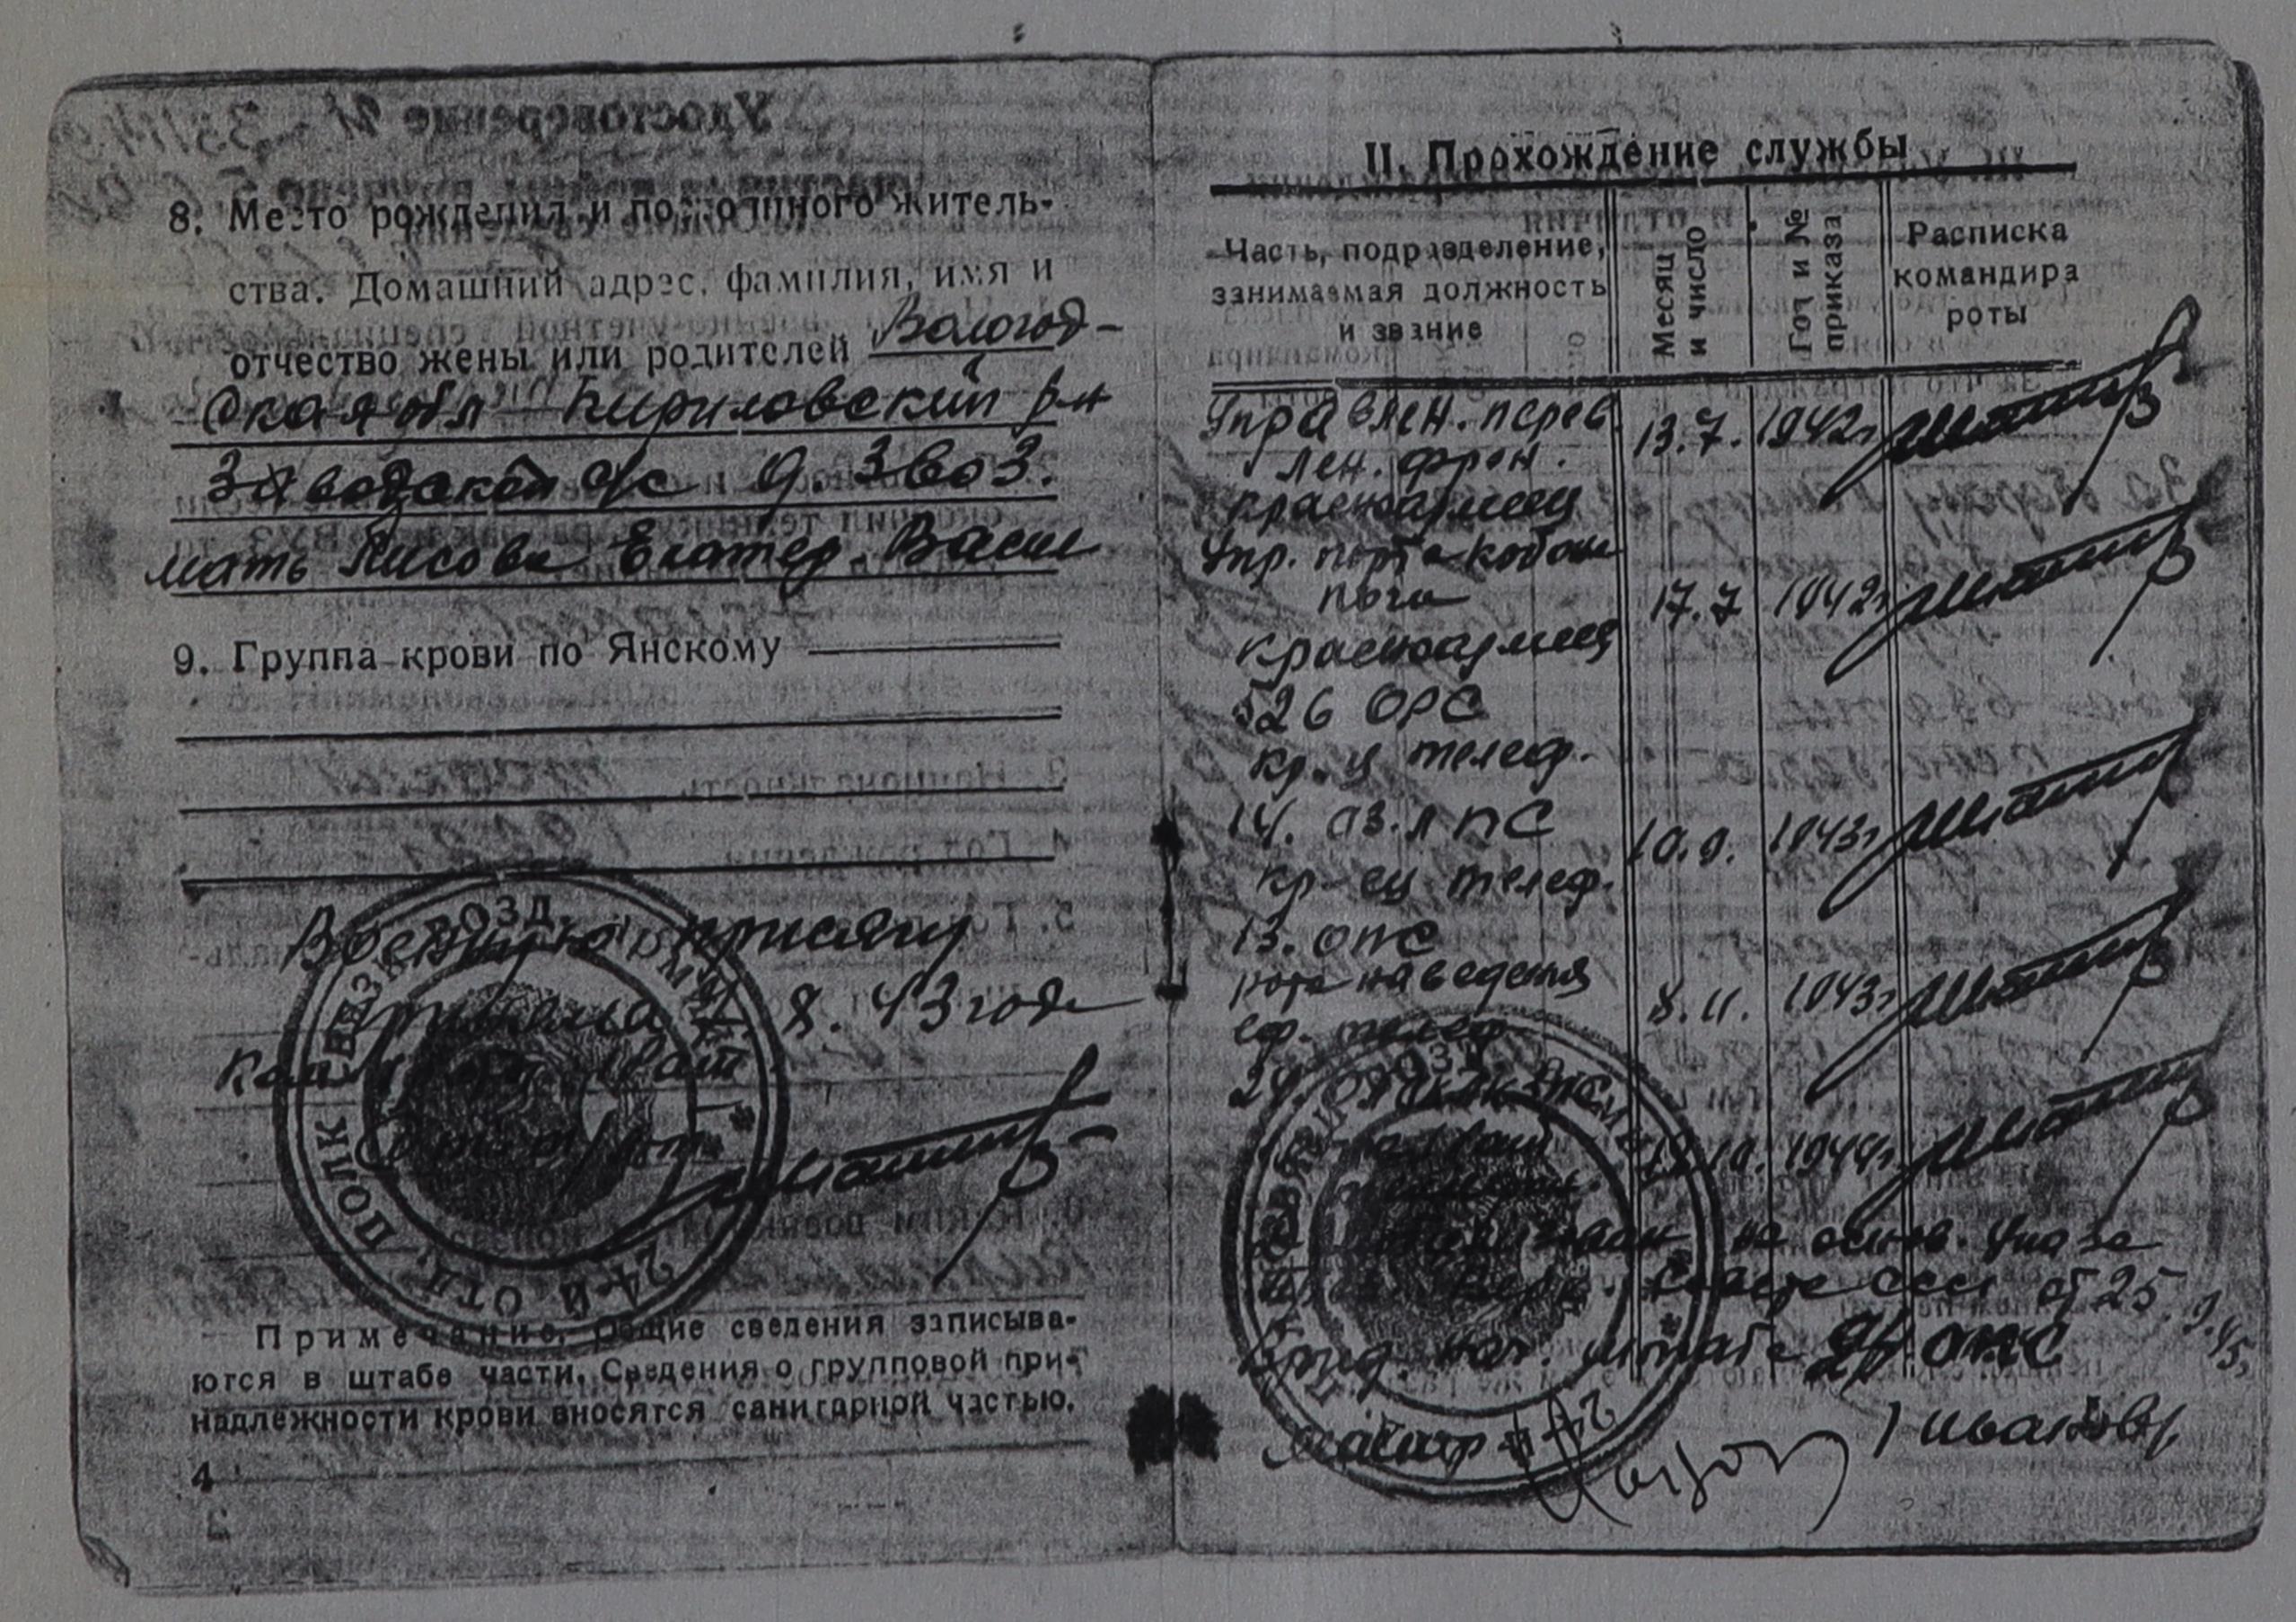 8. Место рождения и постоянного житель-
ства. Домашний адрес, фамилия, имя и
отчество жены или родителей Вологод-
ская обл Кириловский р-н
Заводской с/с д. Звоз.
мать Лисова Екатер. Васил
9. Группа крови по Янскому
Военную присягу
принял 8. 43 года
24-Й ОТД. ПОЛК СВЯЗИ ВОЗД. АРМИИ
Примечание. Общие сведения записыва-
ются в штабе части. Сведения о групповой при-
надлежности крови вносятся санитарной частью.
4
II. Прохождение службы
Часть, подразделение, занимаемая должность и звание
Месяц и число
Год и № приказа
Расписка командира роты
Управлен. перев. 13.7. 1942г
Лен. фрон.
красноармеец
Упр. порта Кобон
17.7 1942г
красноармеец
526 ОРС
кр. ц телеф.
14. ОЗ.ЛПС 10.9. 1943г
кр-ец телеф.
13. ОПС
рота наведения 8.11. 1943г
еф. телеф.
10. 1944г.
на основ. Указа
Верх. Совета СССР от 25.9.45
нач. штаба 24 ОПС
майор Иванов